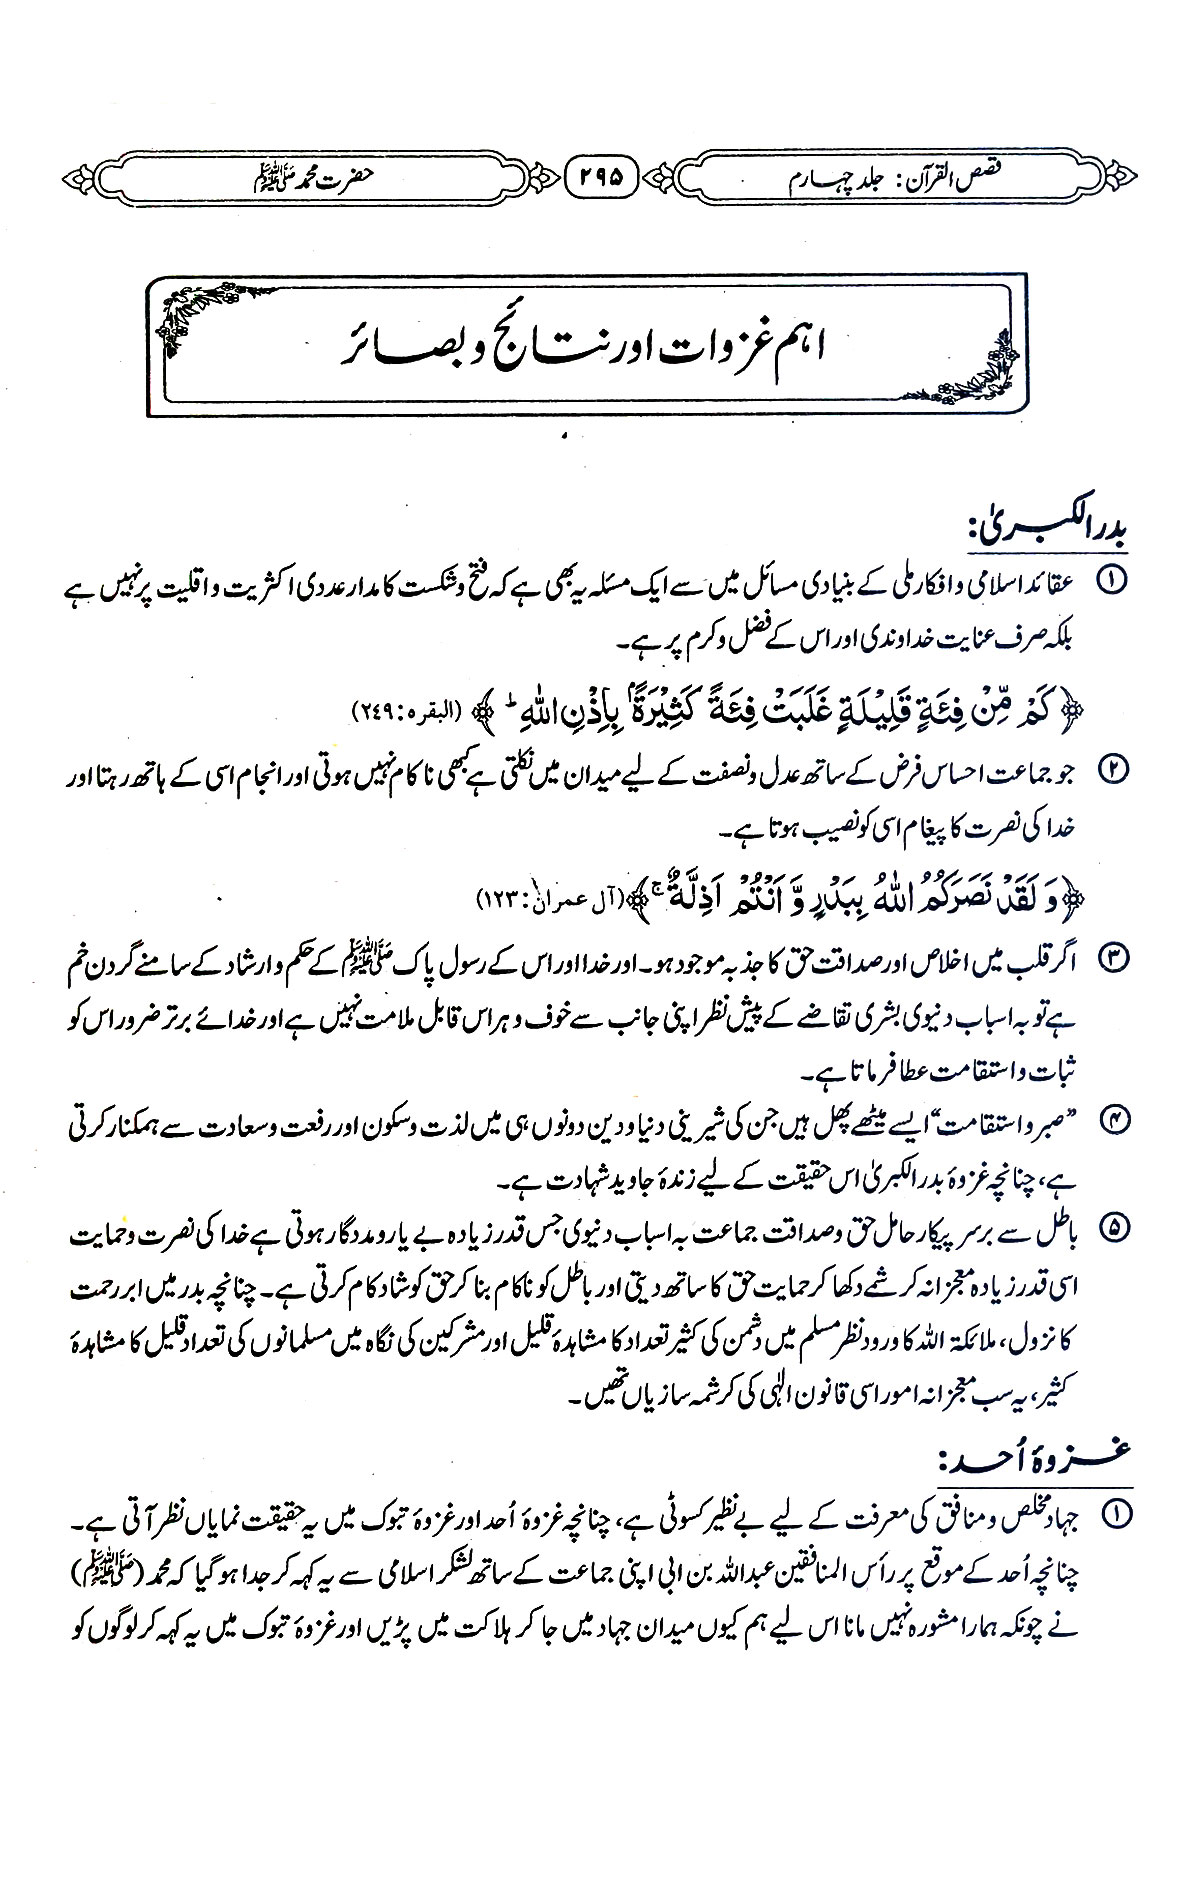 قصص القرآن: جلد چہارم
۲۹۵
حضرت محمد ﷺ
اہم غزوات اور نتائج و بصائر
بدر الکبریٰ:
① عقائد اسلامی و افکار ملی کے بنیادی مسائل میں سے ایک مسئلہ یہ بھی ہے کہ فتح و شکست کا مدار عددی اکثریت و اقلیت پر نہیں ہے
بلکہ صرف عنایت خداوندی اور اس کے فضل و کرم پر ہے۔
﴿كَمْ مِّنْ فِئَةٍ قَلِيْلَةٍ غَلَبَتْ فِئَةً كَثِيْرَةًۢ بِاِذْنِ اللّٰهِ ؕ﴾ (البقرہ: ۲۴۹)
② جو جماعت احساس فرض کے ساتھ عدل و نصفت کے لیے میدان میں نکلتی ہے کبھی ناکام نہیں ہوتی اور انجام اسی کے ہاتھ رہتا اور
خدا کی نصرت کا پیغام اسی کو نصیب ہوتا ہے۔
﴿وَ لَقَدْ نَصَرَكُمُ اللّٰهُ بِبَدْرٍ وَّ اَنْتُمْ اَذِلَّةٌ ۚ﴾ (آل عمران: ۱۲۳)
③ اگر قلب میں اخلاص اور صداقت حق کا جذبہ موجود ہو۔ اور خدا اور اس کے رسول پاک ﷺ کے حکم و ارشاد کے سامنے گردن خم
ہے تو بہ اسباب دنیوی بشری تقاضے کے پیش نظر اپنی جانب سے خوف و ہراس قابل ملامت نہیں ہے اور خدائے برتر ضرور اس کو
ثبات و استقامت عطا فرماتا ہے۔
④ ”صبر و استقامت“ ایسے میٹھے پھل ہیں جن کی شیرینی دنیا و دین دونوں ہی میں لذت و سکون اور رفعت و سعادت سے ہمکنار کرتی
ہے، چنانچہ غزوۂ بدر الکبریٰ اس حقیقت کے لیے زندۂ جاوید شہادت ہے۔
⑤ باطل سے برسر پیکار حامل حق و صداقت جماعت بہ اسباب دنیوی جس قدر زیادہ بے یار و مددگار ہوتی ہے خدا کی نصرت و حمایت
اسی قدر زیادہ معجزانہ کرشمے دکھا کر حمایت حق کا ساتھ دیتی اور باطل کو ناکام بنا کر حق کو شاد کام کرتی ہے۔ چنانچہ بدر میں ابر رحمت
کا نزول، ملائکۃ اللہ کا ورود نظر مسلم میں دشمن کی کثیر تعداد کا مشاہدۂ قلیل اور مشرکین کی نگاہ میں مسلمانوں کی تعداد قلیل کا مشاہدۂ
کثیر، یہ سب معجزانہ امور اسی قانون الٰہی کی کرشمہ سازیاں تھیں۔
غزوۂ اُحد:
① جہاد مخلص و منافق کی معرفت کے لیے بے نظیر کسوٹی ہے، چنانچہ غزوۂ اُحد اور غزوۂ تبوک میں یہ حقیقت نمایاں نظر آتی ہے۔
چنانچہ اُحد کے موقع پر رأس المنافقین عبداللہ بن ابی اپنی جماعت کے ساتھ لشکر اسلامی سے یہ کہہ کر جدا ہو گیا کہ محمد (ﷺ)
نے چونکہ ہمارا مشورہ نہیں مانا اس لیے ہم کیوں میدان جہاد میں جا کر ہلاکت میں پڑیں اور غزوۂ تبوک میں یہ کہہ کر لوگوں کو